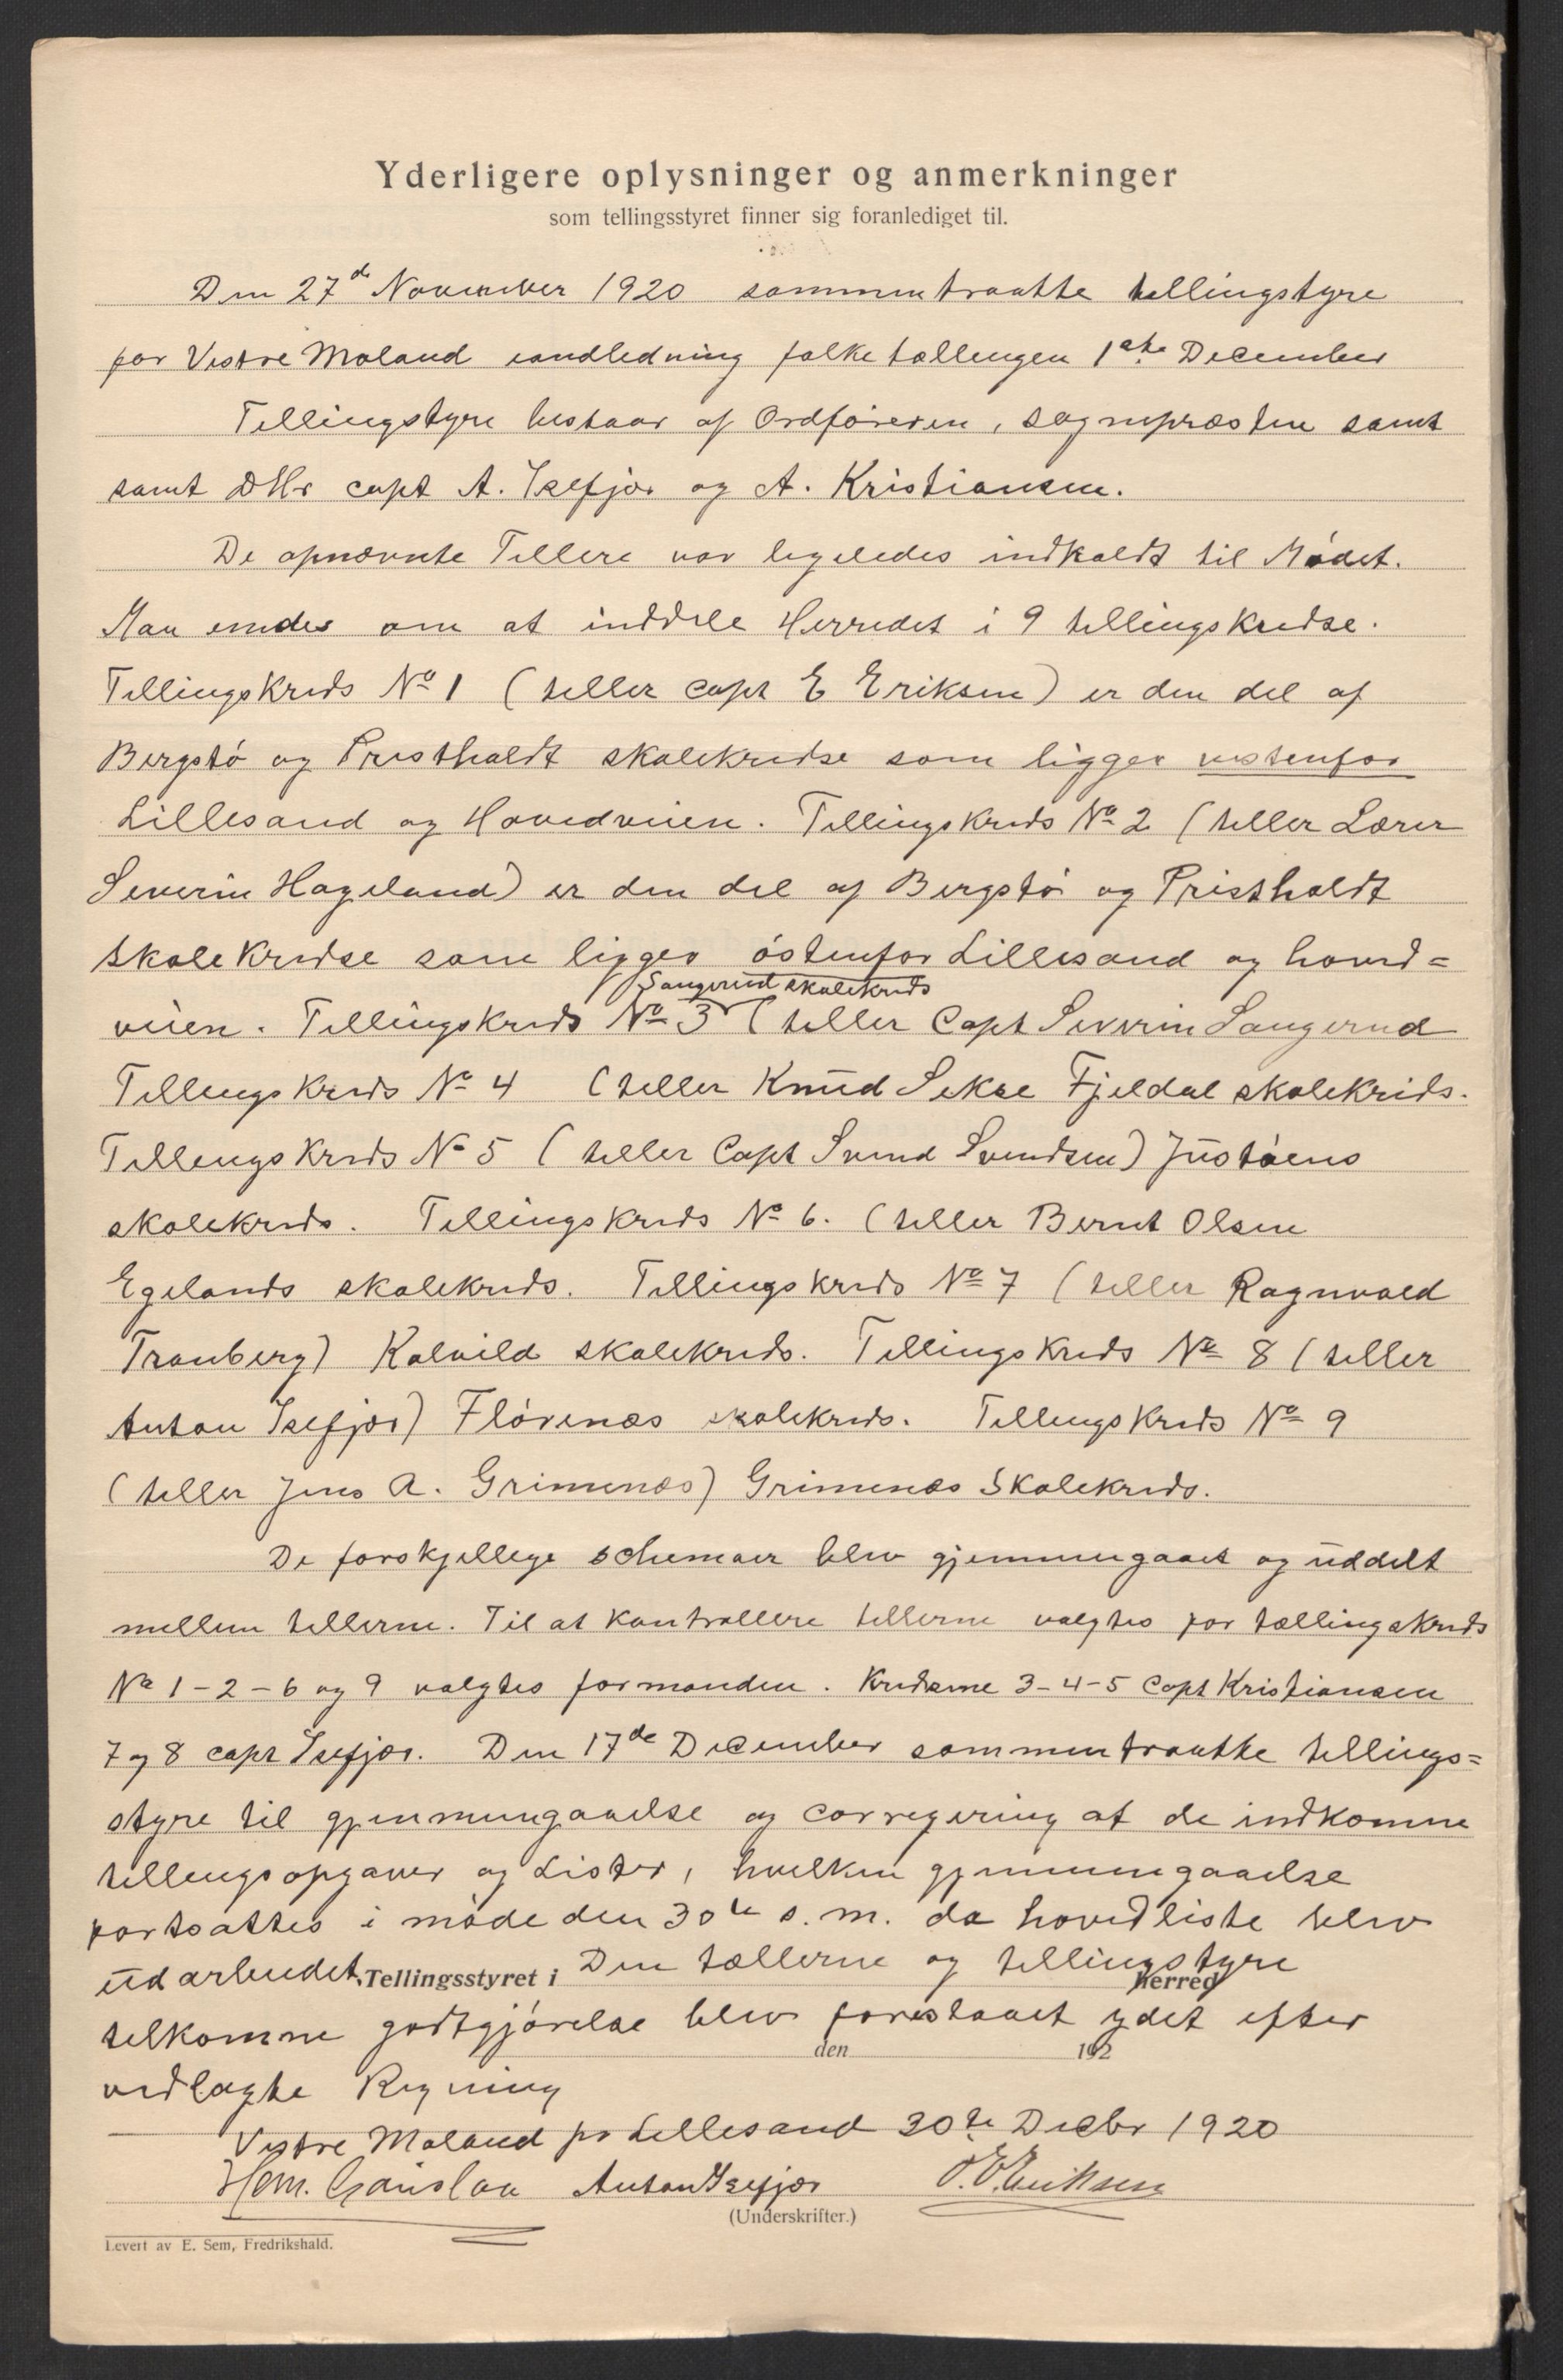 Yderligere oplysninger og anmerkninger
som tellingsstyret finner sig foranlediget til.
Den 27de November 1920 sammentraatte tellingstyre
for Vestre Moland iandledning folketællingen 1ste December
Tellingstyre bestaar af Ordføreren, sognepræsten samt
samt DHr capt A. Isefjær og A. Kristiansen.
De opnævnte Tellere var ligeledes indkaldt til Mødet.
Man enedes om at inddele Herredet i 9 tellingskredse.
Tellingskreds No 1 (teller capt E Eriksen) er den del af
Bergstø og Prestholdt skolekredse som ligger vestenfor
Lillesand og Hovedveien. Tellingskreds No 2 (teller Lærer
Severin Hageland) er den del af Bergstø og Prestholdt
skolekredse som ligger østenfor Lillesand og hoved=
Sangereid skolekreds
veien. Tellingskreds No 3 (teller Capt Severin Sangereid
Tellingskreds No 4 (teller Knud Sekse Fjeldal skolekreds.
Tellingskreds No 5 (teller Capt Svend Svendsen) Justøens
skolekreds. Tellingskreds No 6. (teller Bernt Olsen
Egelands skolekreds. Tellingskreds No 7 (teller Ragnvald
Tranberg) Kalvild skolekreds. Tellingskreds No 8 (teller
Anton Isefjær) Flørenæs skolekreds. Tellingskreds No 9
(teller Jens A. Grimenæs) Grimenæs Skolekreds.
De forskjellige schemaer blev gjennemgaaet og uddelt
mellem tellerne. Til at kontrollere tellerne valgtes for tællingskreds
No 1-2-6 og 9 valgtes formanden. Kredsene 3-4-5 Capt Kristiansen
7 og 8 capt Isefjær. Den 17de December sammentraatte tellings=
styre til gjennemgaaelse og corregering af de indkomne
tellingsopgaver og Lister, hvilken gjennemgaaelse
fortsattes i møde den 30te s.m. da hovedliste blev
udarbeidet. Tellingsstyret i Den tællerne og tellingstyre herred
tilkomne godtgjørelse blev forestaaet ydet efter
den 192
vedlagte Regning
Vestre Moland pr Lillesand 30te Decbr 1920
Anton Isefjær O. E. Eriksen
(Underskrifter.)
Levert av E. Sem, Fredrikshald.